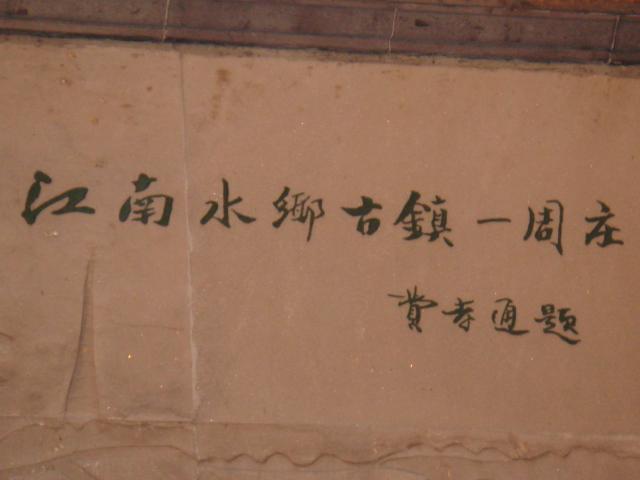 江南水鄉古鎮一周庄
費孝通題